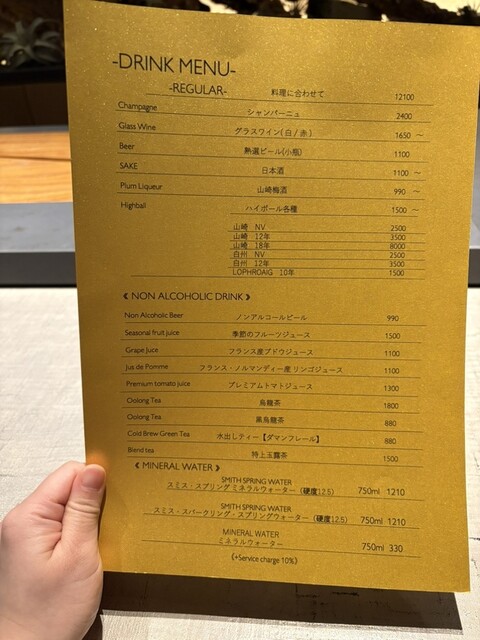 -DRINK MENU-
-REGULAR- 料理に合わせて 12100
Champagne シャンパーニュ 2400
Glass Wine グラスワイン(白/赤) 1650 ～
Beer 熟選ビール(小瓶) 1100
SAKE 日本酒 1100 ～
Plum Liqueur 山崎梅酒 990 ～
Highball ハイボール各種 1500 ～
山崎 NV 2500
山崎 12年 3500
山崎 18年 8000
白州 NV 2500
白州 12年 3500
LOPHROAIG 10年 1500
《 NON ALCOHOLIC DRINK 》
Non Alcoholic Beer ノンアルコールビール 990
Seasonal fruit juice 季節のフルーツジュース 1500
Grape Juce フランス産ブドウジュース 1100
Jus de Pomme フランス・ノルマンディー産 リンゴジュース 1100
Premium tomato juice プレミアムトマトジュース 1300
Oolong Tea 烏龍茶 1800
Oolong Tea 黒烏龍茶 880
Cold Brew Green Tea 水出しティー【ダマンフレール】 880
Blend tea 特上玉露茶 1500
《 MINERAL WATER 》
SMITH SPRING WATER
スミス・スプリング ミネラルウォーター (硬度12.5) 750ml 1210
SMITH SPRING WATER
スミス・スパークリング・スプリングウォーター (硬度12.5) 750ml 1210
MINERAL WATER
ミネラルウォーター 750ml 330
(+Service charge 10%)